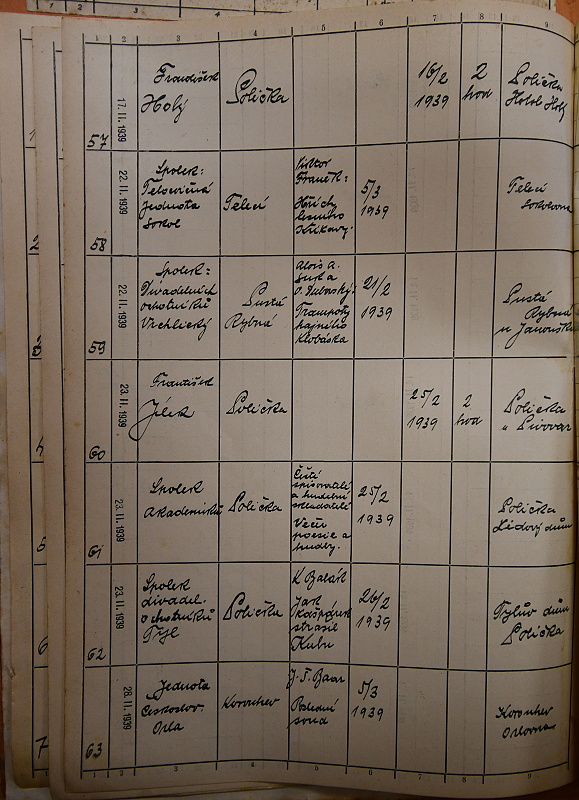 1 2 3 4 5 6 7 8 9
57
17. II. 1939
František
Holý
Polička
16/2
1939
2
hod
Polička
Hotel Holý
58
22. II. 1939
Spolek:
Tělocvičná
jednota
Sokol
Telecí
Viktor
Hříchy
lesního
5/3
1939
Telecí
Sokolovna
59
22. II. 1939
Spolek:
Divadelních
ochotníků
Vrchlický
Pustá
Rybná
Alois A.
Trampoty
hajného
Klobáska
21/2
1939
Pustá
Rybná
u Janouška
60
23. II. 1939
František
Jílek
Polička
25/2
1939
2
hod
Polička
„ Pivovar
61
23. II. 1939
Spolek
Akademiků
Polička
Čeští
spisovatelé
a hudební
skladatelé
Večer
poesie a
hudby.
25/2
1939
Polička
Lidový dům
62
23. II. 1939
Spolek
divadel.
ochotníků
Tyl
Polička
K Balák
Jak
Kašpárek
strašil
Kubu
26/2
1939
Tylův dům
Polička
63
28. II. 1939
Jednota
Českoslov.
Orla
Korouhev
J. Š. Baar
Poslední
soud
5/3
1939
Korouhev
Orlovna
1 2 3 4 5 6 7 8 9